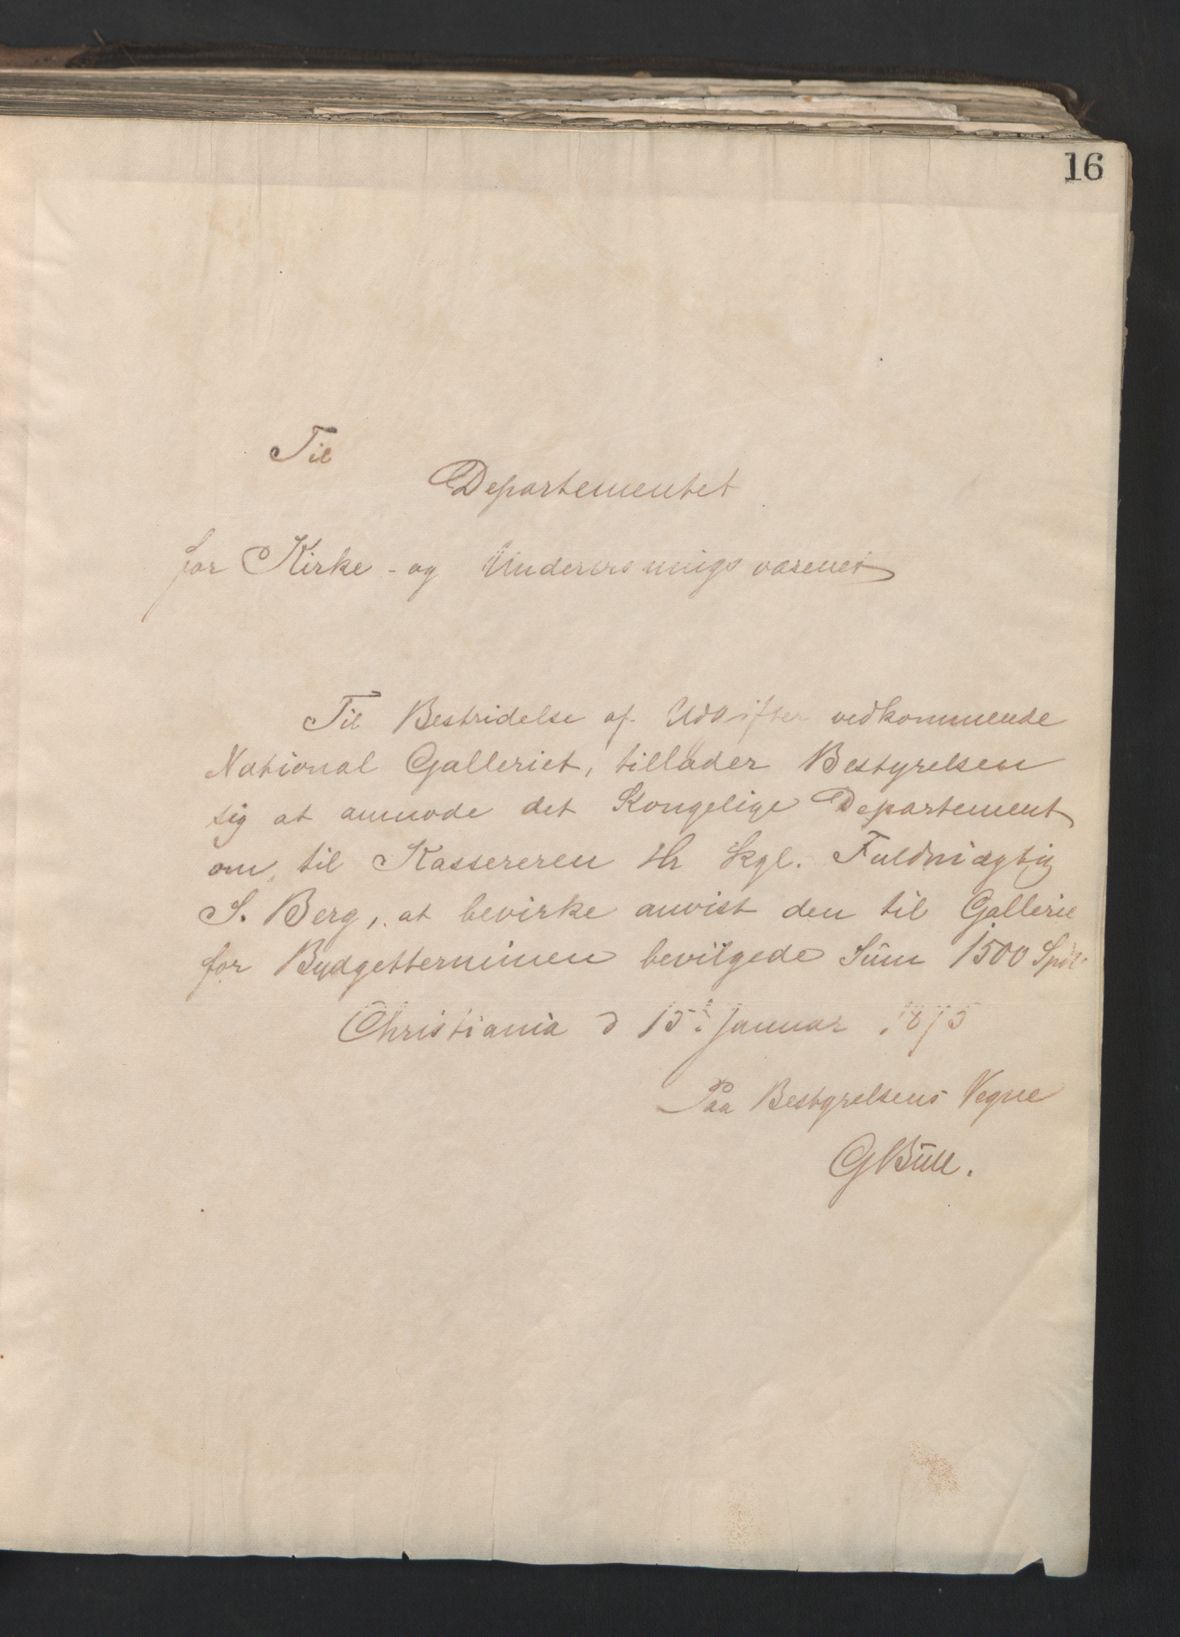 16
Til
Departementet
for Kirke - og Undervisnings væsenet
Til Bestridelse af Udgifter vedkommende
National Galleriet, tillader Bestyrelsen
sig at anmode det Kongelige Departement
om, til Kassereren Hr kgl. Fuldmægtig
S. Berg, at bevirke anvist den til Galleriet
for Budgetterminen bevilgede Sum 1500 Spdl.
Christiania d 15. Januar 1875
Paa Bestyrelsens Vegne
GBull.